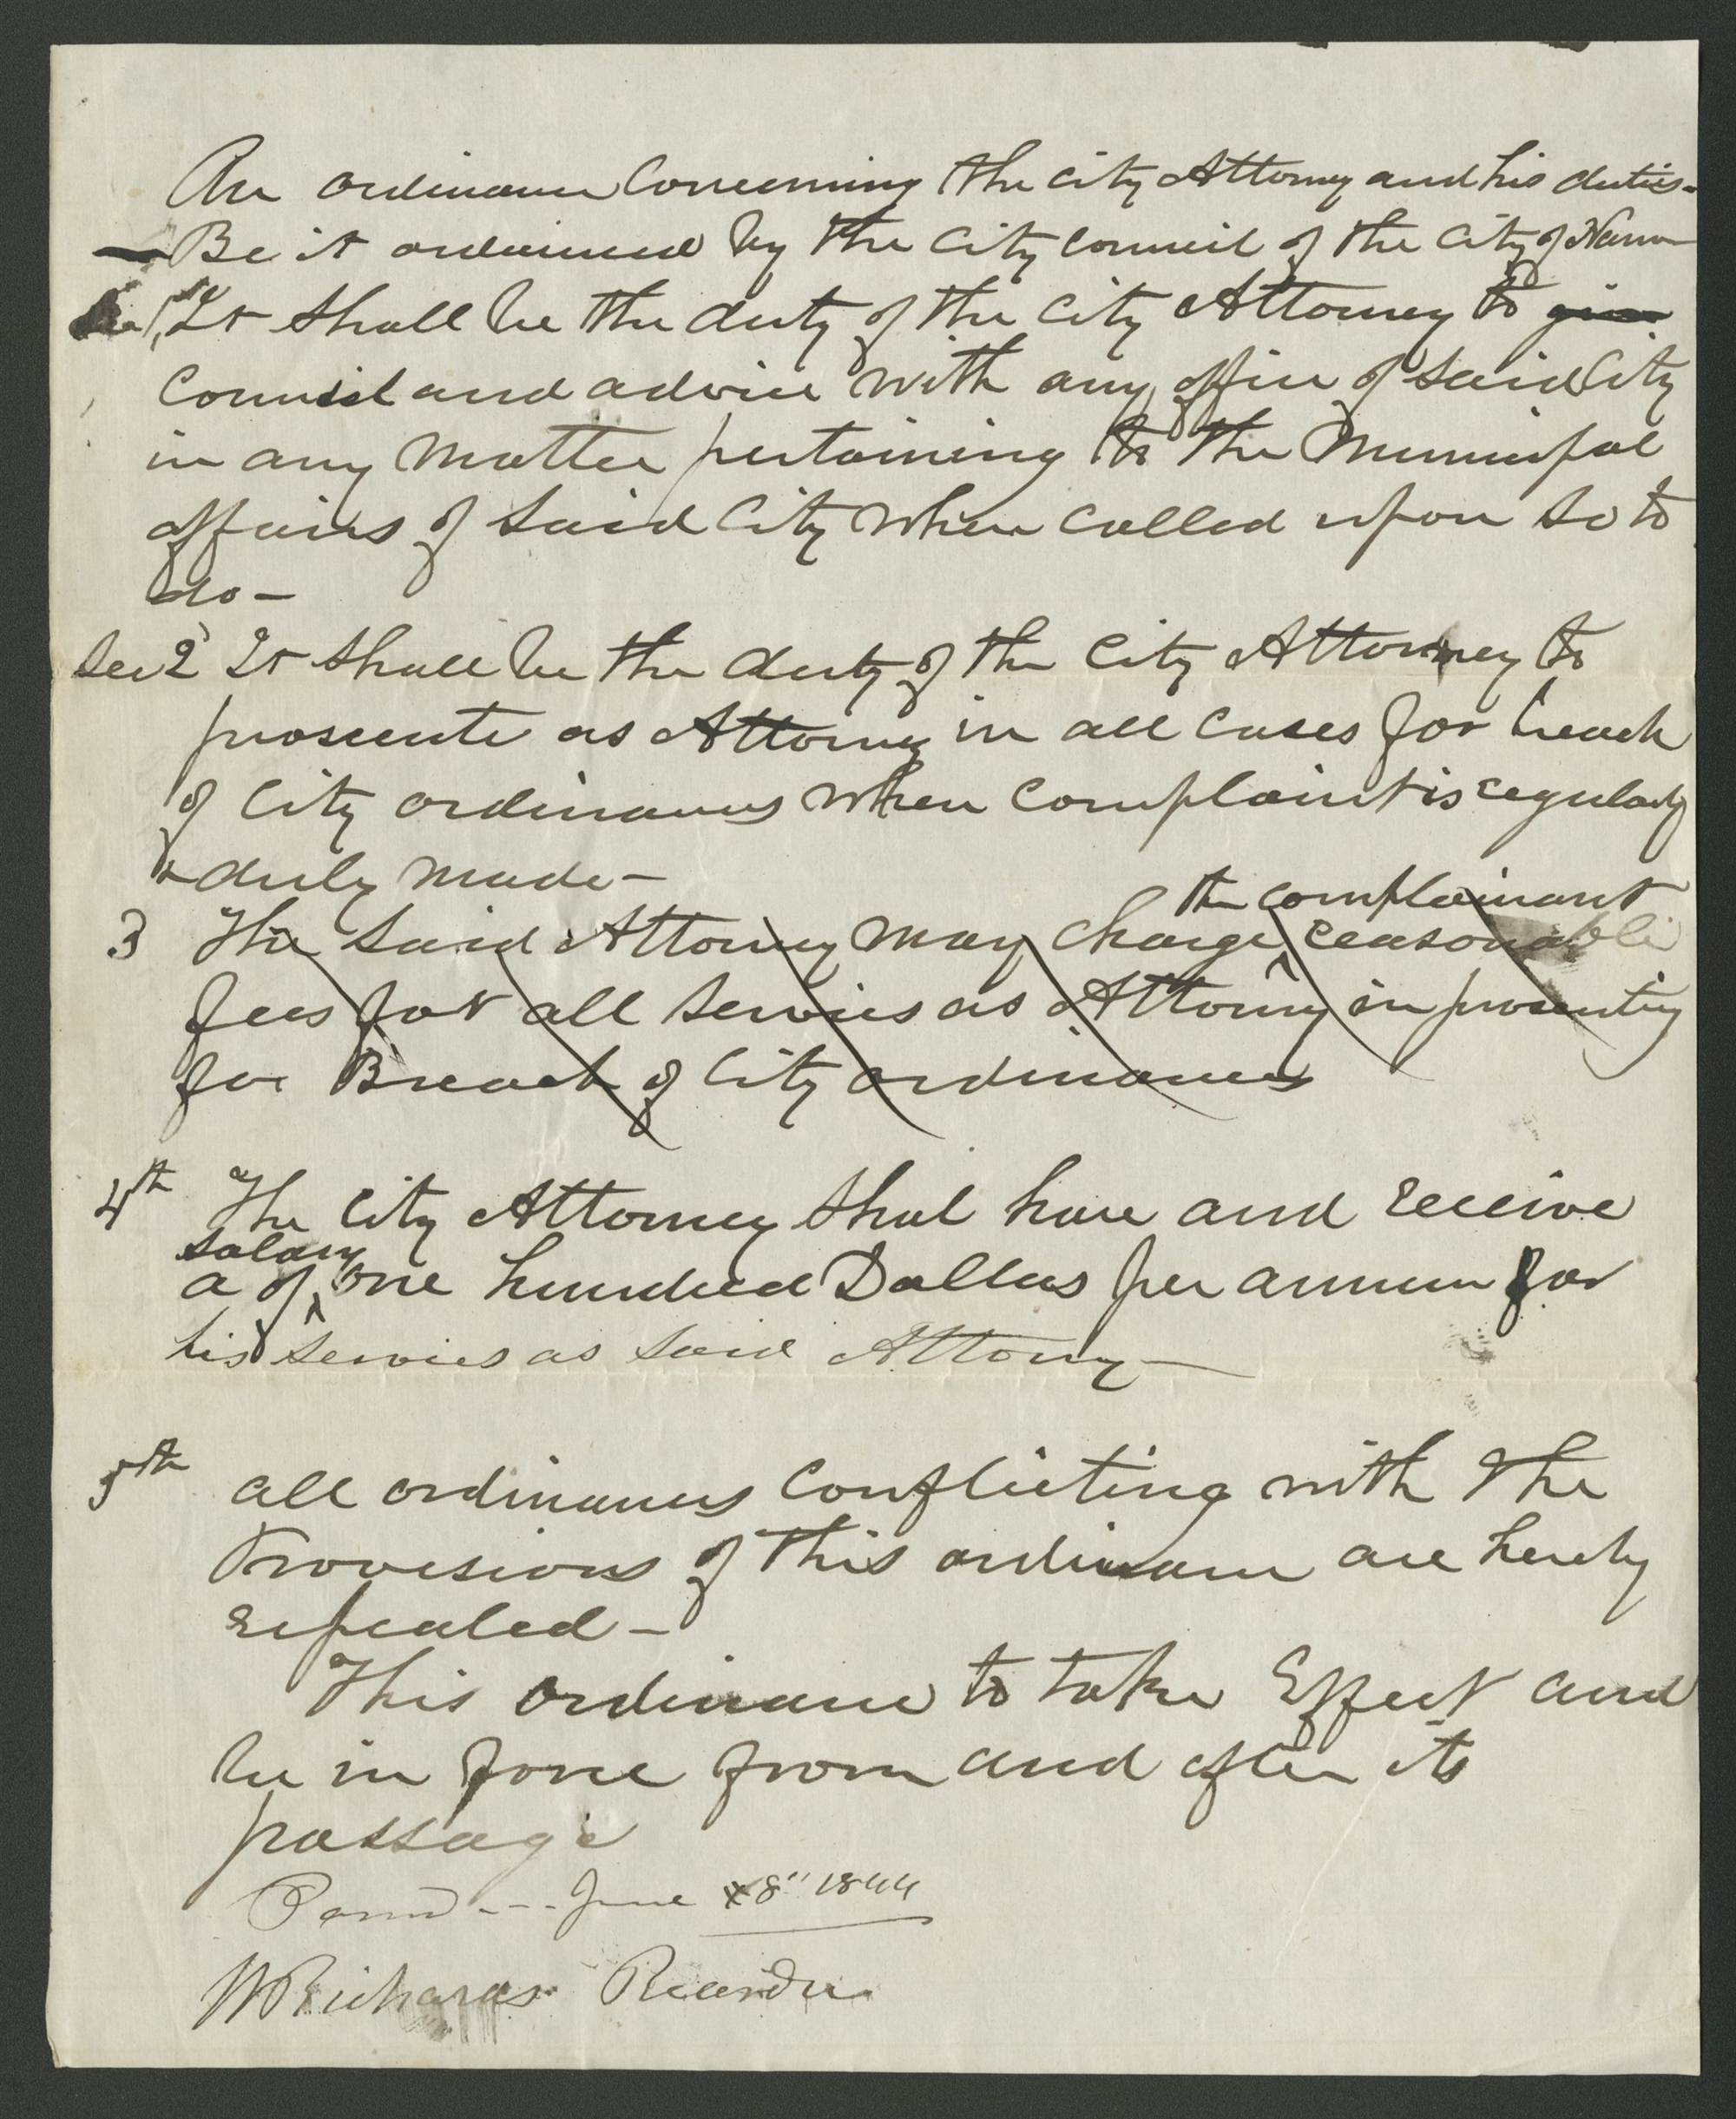 An ordinance Concerning the city Attorney and his duties-
Be it ordained by the City Council of the City of
Sec 1st It shall be the duty of the City Attorney to give
Council and advice with any officer of said City
in any matter pertaining to the Municipal
affairs of said City when called upon so to
do -
Sec 2 It shall be the duty of the City Attorney to
prosecute as Attorney in all cases for breach
of City ordinances when complaint is regularly
& duly made -
the complainant
3 The said Attorney may charge reasonable
fees for all services as Attorney in prosecuting
for Breach of City ordinances
4th The City Attorney shal have and receive
salary
a of one hundred Dollars per annum for
his services as said Attorney -
5th all ordinances conflicting with the
Provisions of this ordinance are hereby
repealed -
This ordinance to take Effect and
be in force from and after its
passage
Passed --- June 8" 1844
W Richards Recorder